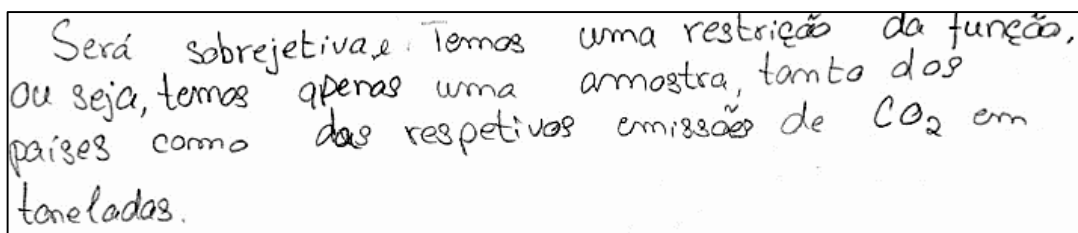 Será sobrejetiva. Temos uma restrição da função,
ou seja, temos apenas uma amostra, tanto dos
países como das respetivos emissões de CO₂ em
toneladas.